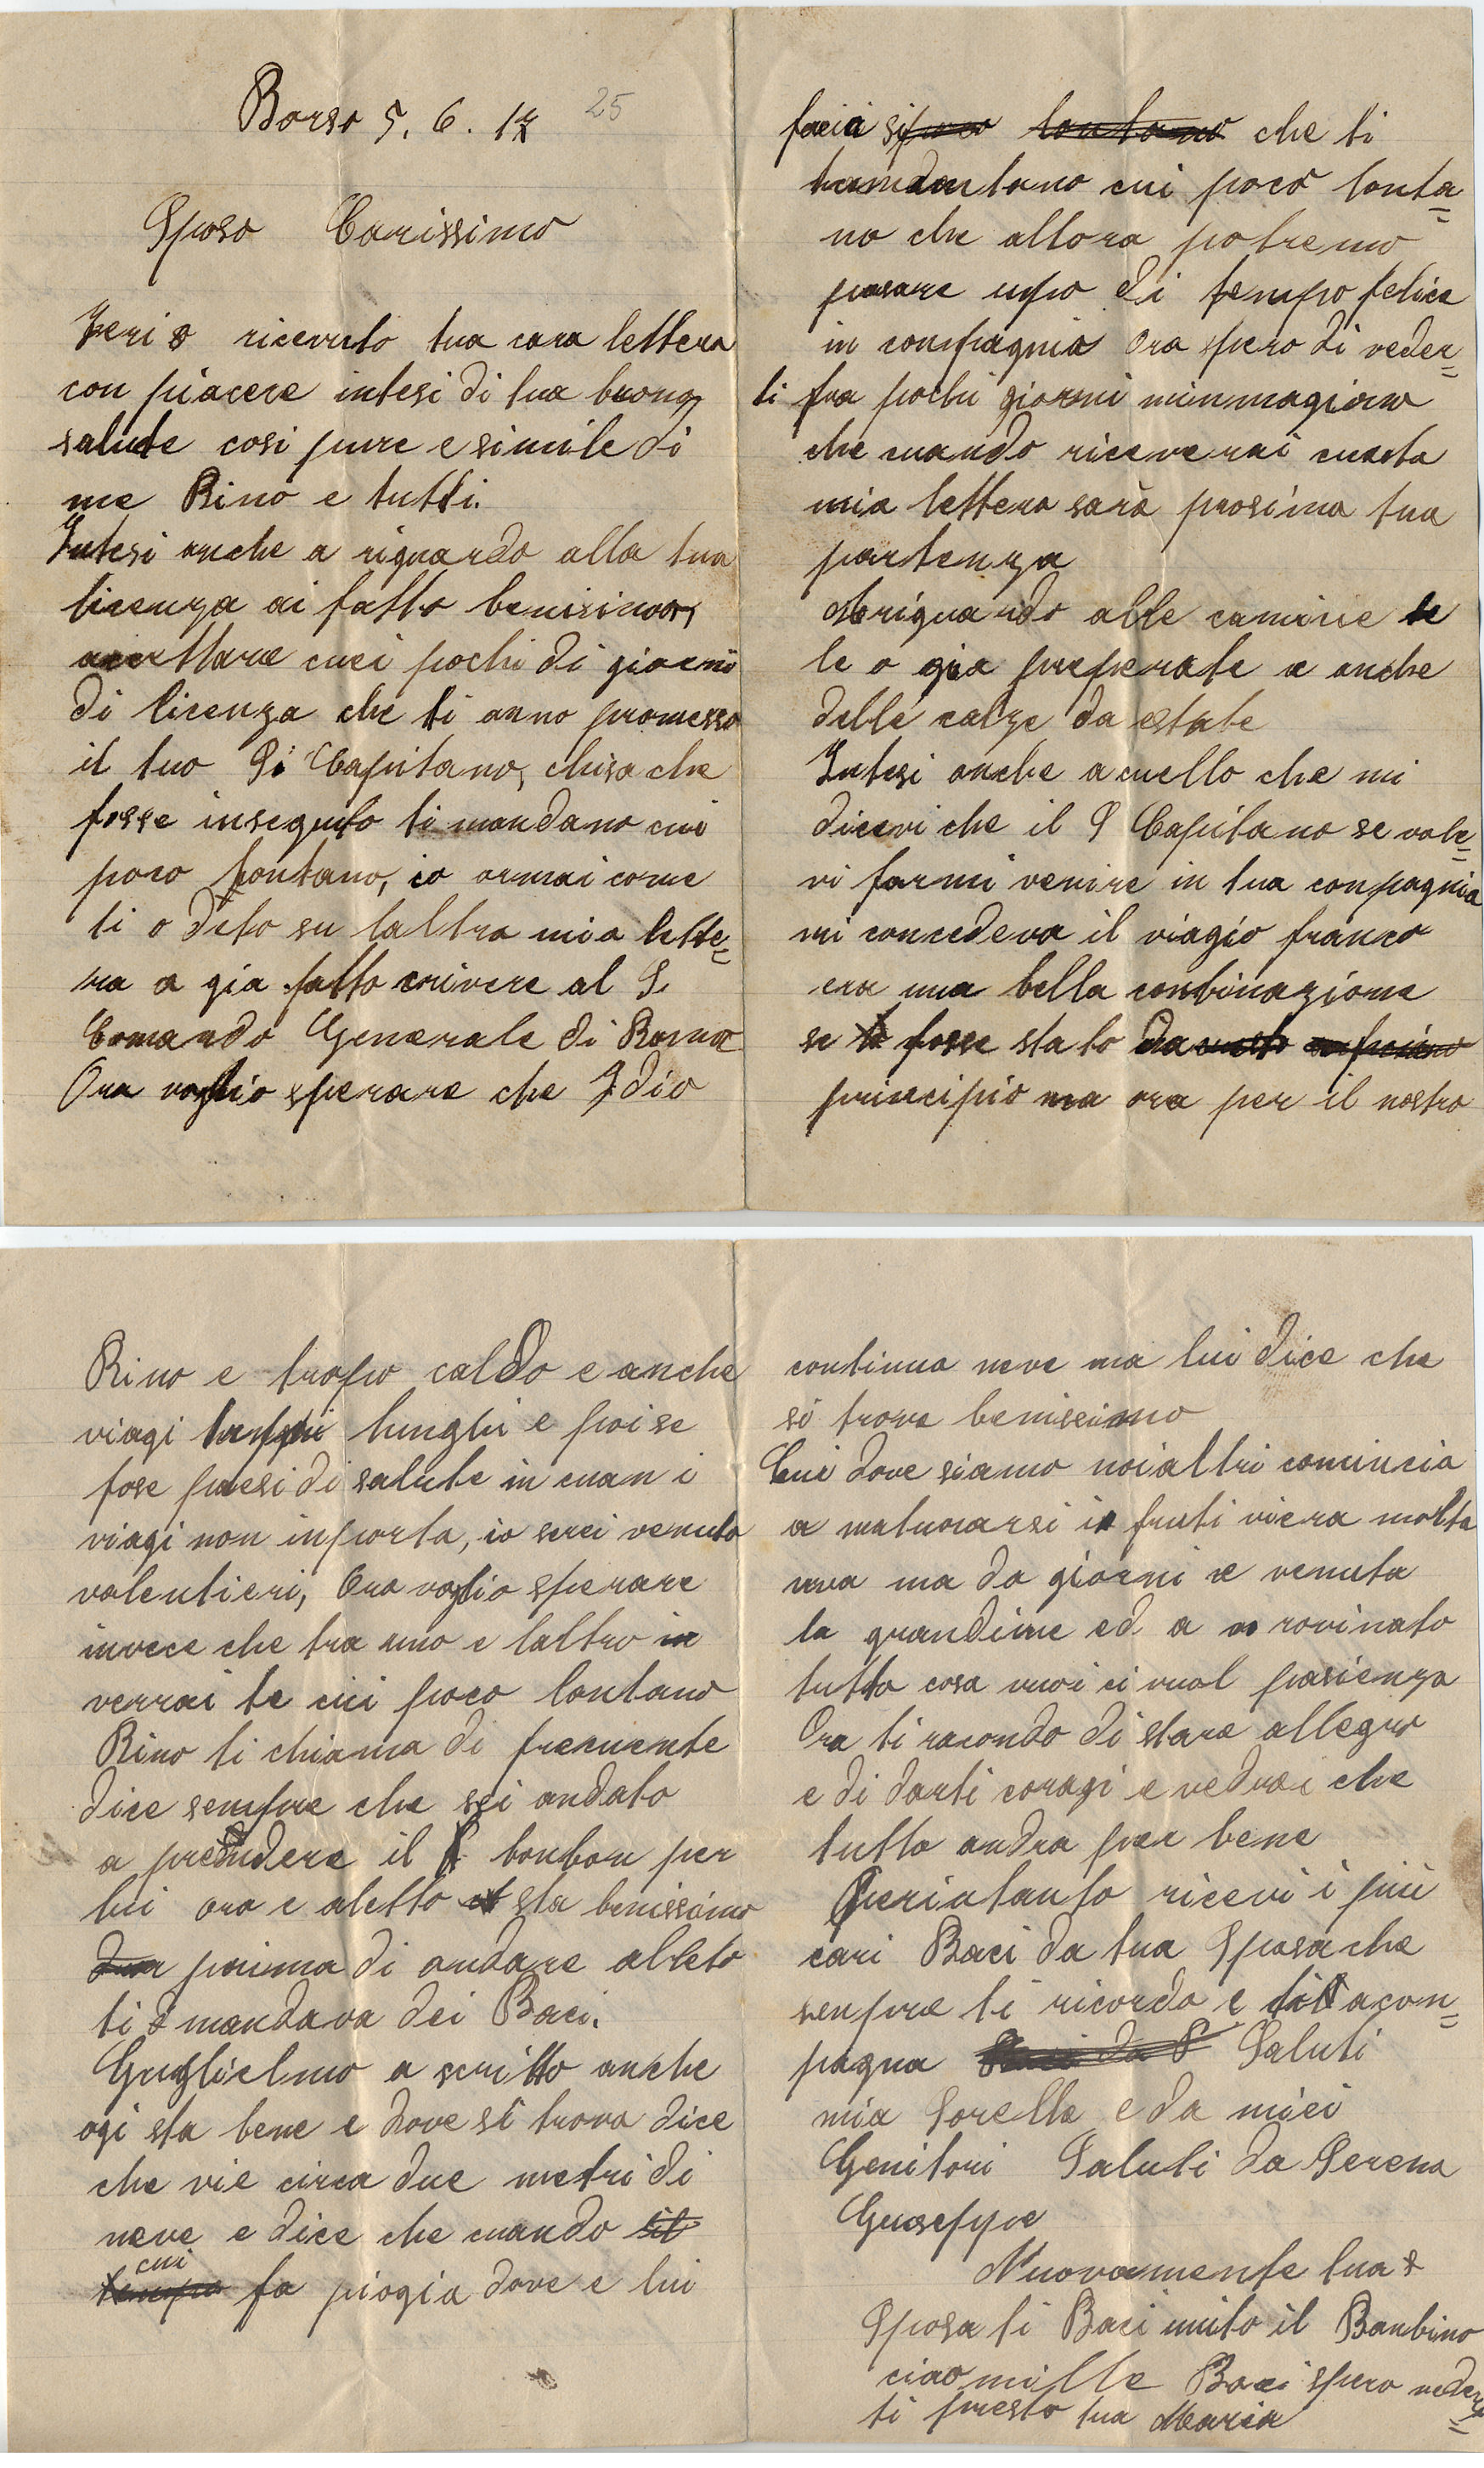 Borso 5. 6. 17 25
Sposo Carissimo
Ieri o ricevuto tua cara lettera
con piacere intesi di tua buona
salute cosi pure e simile di
me Rino e tutti.
Intesi anche a riguardo alla tua
licenza ai fatto benisimo
acerttare cuei pochi di giorni
di licenza che ti anno promesso
il tuo S. Capitano, chisa che
fosse inseguito ti mandano cui
poco lontano, io ormai come
ti o deto su laltra mia lette=
ra a gia fatto crivere al S.
Comando Generale di Roma
Ora voglio sperare che Idio
facia si poco lontano che ti
mandano cui poco lonta=
no che allora potremo
pasare unpo di tempo felice
in compagnia Ora spero di veder=
ti fra pochi giorni minmagino
che cuando riceverai cuesta
mia lettera sarà prosima tua
partenza
Ariguardo alle camicie te
le o gia preperate e anche
delle calze da estate
Intesi anche a cuello che mi
dicevi che il S Capitano se vole=
vi farmi venire in tua conpagnia
mi concedeva il viagio franco
era una bella conbinazione
se fosse stato da cuesto
principio ma ora per il nostro
Rino e tropo caldo e anche
viagi lunghi lunghi e poi se
fose paesi di salute in cuan i
viagi non inporta, io serei venuto
volentieri, Ora voglio sperare
invece che tra uno e laltro in
verrai te cui poco lontano
Rino ti chiama di frecuente
dice senpre che sei andato
a prendere il bonbon per
lui ora e aletto sta benissimo
prima di andare alleto
ti mandava dei Baci.
Guglielmo a scritto anche
ogi sta bene e dove si trova dice
che vie circa due metri di
neve e dice che cuando
cui
tempo fa piogia dove e lui
continua neve ma lui dice che
si trova benissimo
Cui dove siamo noialtri comincia
a maturarsi i fruti viera molta
uva ma da giorni e venuta
la grandine ed a rovinato
tutto cosa vuoi ci vuol pasienza
Ora ti racondo di stare allegro
e di darti coragi e vedrai che
tutto andra per bene
Perintanto ricevi i più
cari Baci da tua Sposa che
senpre ti ricorda e ti acon=
pagna Baci da S Saluti
mia Sorella e da miei
Genitori Saluti da Serena
Guseppe
Nuovamente tua
Sposa ti Baci unito il Banbino
ciao mille Baci spero veder=
ti presto tua Maria